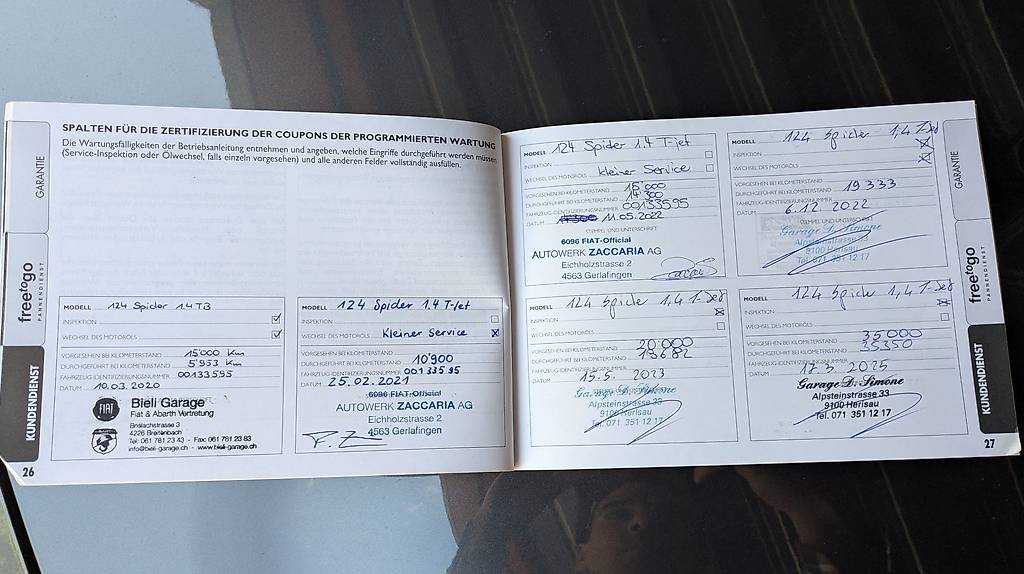 SPALTEN FÜR DIE ZERTIFIZIERUNG DER COUPONS DER PROGRAMMIERTEN WARTUNG
Die Wartungsfälligkeiten der Betriebsanleitung entnehmen und angeben, welche Eingriffe durchgeführt werden müssen
(Service-Inspektion oder Ölwechsel, falls einzeln vorgesehen) und alle anderen Felder vollständig ausfüllen.
GARANTIE
freetogo
PANNENDIENST
KUNDENDIENST
26
MODELL 124 Spider 1.4 TB
INSPEKTION
WECHSEL DES MOTORÖLS
VORGESEHEN BEI KILOMETERSTAND 15'000 Km
DURCHGEFÜHRT BEI KILOMETERSTAND 5'953 Km
FAHRZEUG-IDENTIFIZIERUNGSNUMMER 00133595
DATUM 10.03.2020
FIAT
Bieli Garage
Fiat & Abarth Vertretung
Brislachstrasse 3
4226 Breitenbach
Tel: 061 781 23 43 - Fax: 061 781 23 83
info@bieli-garage.ch - www.bieli-garage.ch
MODELL 124 Spider 1.4 T-Jet
INSPEKTION
WECHSEL DES MOTORÖLS Kleiner Service
VORGESEHEN BEI KILOMETERSTAND
DURCHGEFÜHRT BEI KILOMETERSTAND 10'900
FAHRZEUG-IDENTIFIZIERUNGSNUMMER 00133595
DATUM 25.02.2021
6096 FIAT-Official
AUTOWERK ZACCARIA AG
Eichholzstrasse 2
4563 Gerlafingen
MODELL 124 Spider 1.4 T-jet
INSPEKTION
WECHSEL DES MOTORÖLS Kleiner Service
VORGESEHEN BEI KILOMETERSTAND 15'000
DURCHGEFÜHRT BEI KILOMETERSTAND 14'300
FAHRZEUG-IDENTIFIZIERUNGSNUMMER 00133595
DATUM 11.05.2022
STEMPEL UND UNTERSCHRIFT
6096 FIAT-Official
AUTOWERK ZACCARIA AG
Eichholzstrasse 2
4563 Gerlafingen
MODELL 124 Spider 1,4 T-Jet
INSPEKTION
WECHSEL DES MOTORÖLS
VORGESEHEN BEI KILOMETERSTAND
DURCHGEFÜHRT BEI KILOMETERSTAND 19333
FAHRZEUG-IDENTIFIZIERUNGSNUMMER
DATUM 6.12 2022
STEMPEL UND UNTERSCHRIFT
Garage D. Simone
Alpsteinstrasse 33
9100 Herisau
Tel. 071 351 12 17
MODELL 124 Spider 1,4 T-Jet
INSPEKTION
WECHSEL DES MOTORÖLS
VORGESEHEN BEI KILOMETERSTAND 20000
DURCHGEFÜHRT BEI KILOMETERSTAND 19682
FAHRZEUG-IDENTIFIZIERUNGSNUMMER
DATUM 15.5. 2023
Garage D. Simone
Alpsteinstrasse 33
9100 Herisau
Tel. 071 351 12 17
MODELL 124 Spider 1,4 T-Jet
INSPEKTION
WECHSEL DES MOTORÖLS
VORGESEHEN BEI KILOMETERSTAND 35000
DURCHGEFÜHRT BEI KILOMETERSTAND 35350
FAHRZEUG-IDENTIFIZIERUNGSNUMMER
DATUM 17.3. 2025
Garage D. Simone
Alpsteinstrasse 33
9100 Herisau
Tel. 071 351 12 17
GARANTIE
freetogo
PANNENDIENST
KUNDENDIENST
27